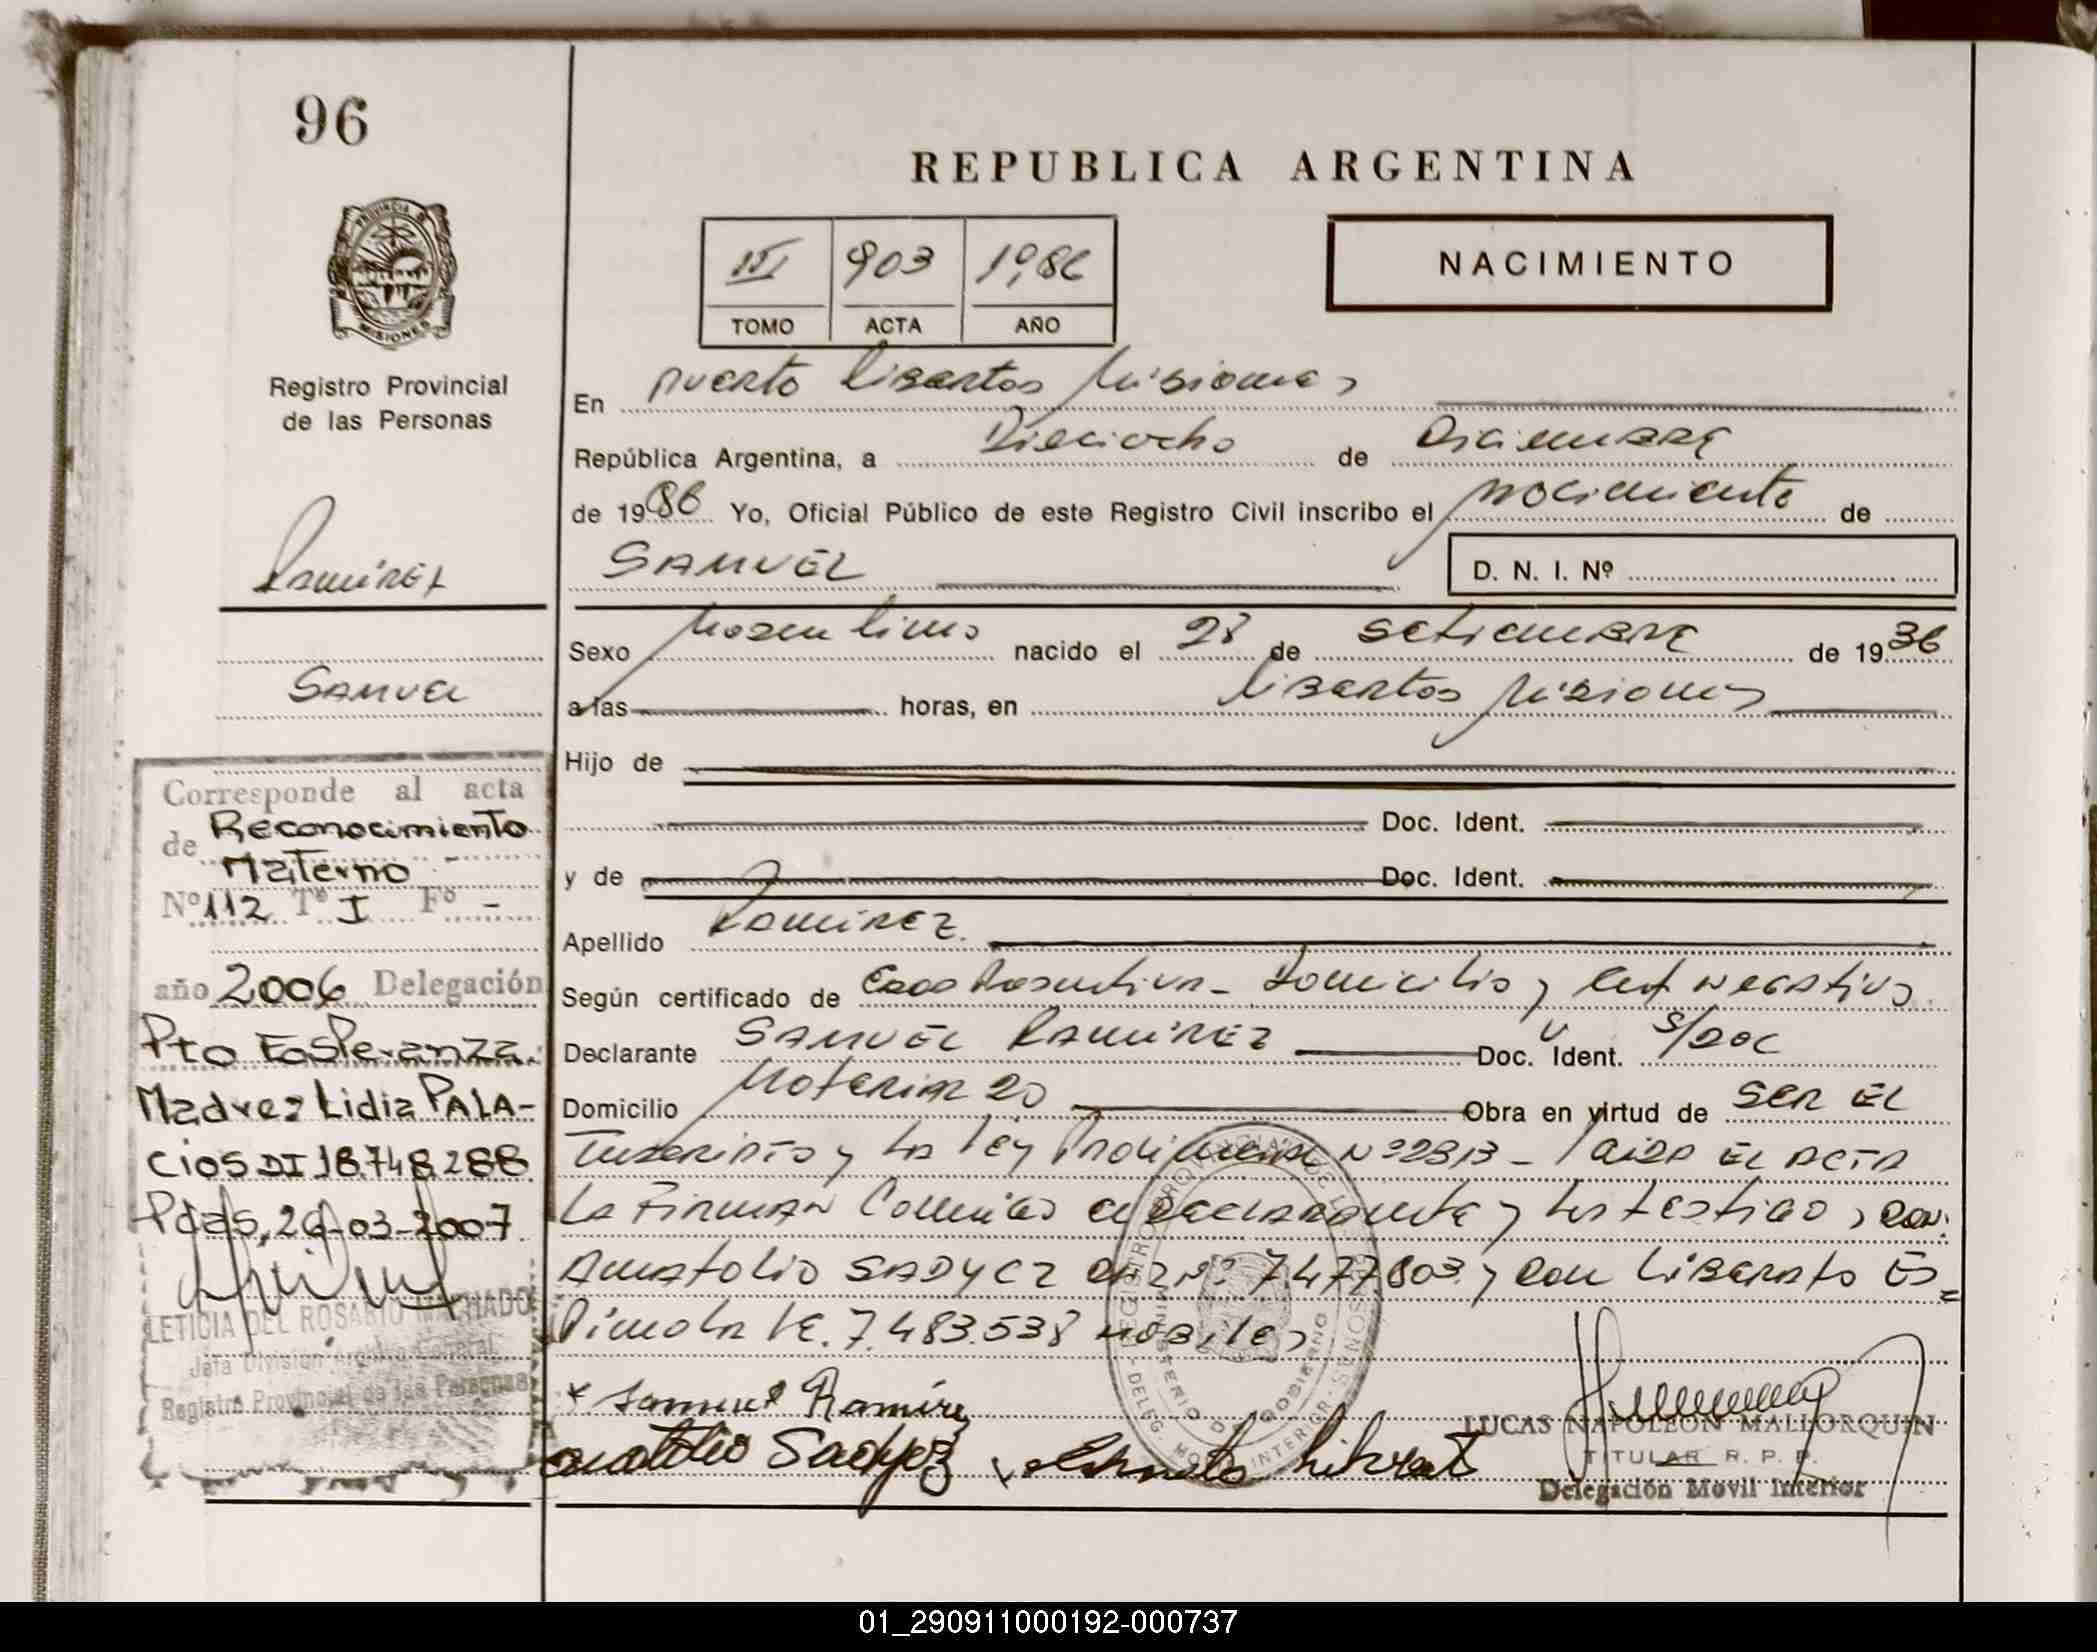 96
REPUBLICA ARGENTINA
PROVINCIA DE MISIONES
III 903 1986
TOMO ACTA AÑO
NACIMIENTO
Registro Provincial
de las Personas
En puerto libertad Misiones
República Argentina, a Dieciocho de Diciembre
de 1986 Yo, Oficial Público de este Registro Civil inscribo el nacimiento de
SAMUEL
D. N. I. Nº
Ramirez
Samuel
Sexo Masculino nacido el 28 de setiembre de 1936
a las horas, en libertad Misiones
Hijo de
Doc. Ident.
y de Doc. Ident.
Apellido Ramirez
Según certificado de domicilio y negativo
Declarante SAMUEL RAMIREZ Doc. Ident. s/Doc
Domicilio 20 Obra en virtud de SER EL
Inscripto y la ley Provincial Nº 2813 - Leida EL ACTA
La Firman Conmigo el Declarante y los testigos, Don
Anatolio SADYCZ Nº 7477.803 y Don Liberato Es=
Pindola LE. 7.483.538
Samuel Ramírez
LUCAS NAPOLEON MALLORQUIN
TITULAR R. P. P.
Delegación Movil Interior
Corresponde al acta
de Reconocimiento
Materno
Nº 112 Tº I Fº -
año 2006 Delegación
Pto Esperanza.
Madre: Lidia PALA-
CIOS DI 18.748.288
Pdas, 26-03-2007
LETICIA DEL ROSARIO MACHADO
Jefa División Archivo General
Registro Provincial de las Personas
01_290911000192-000737